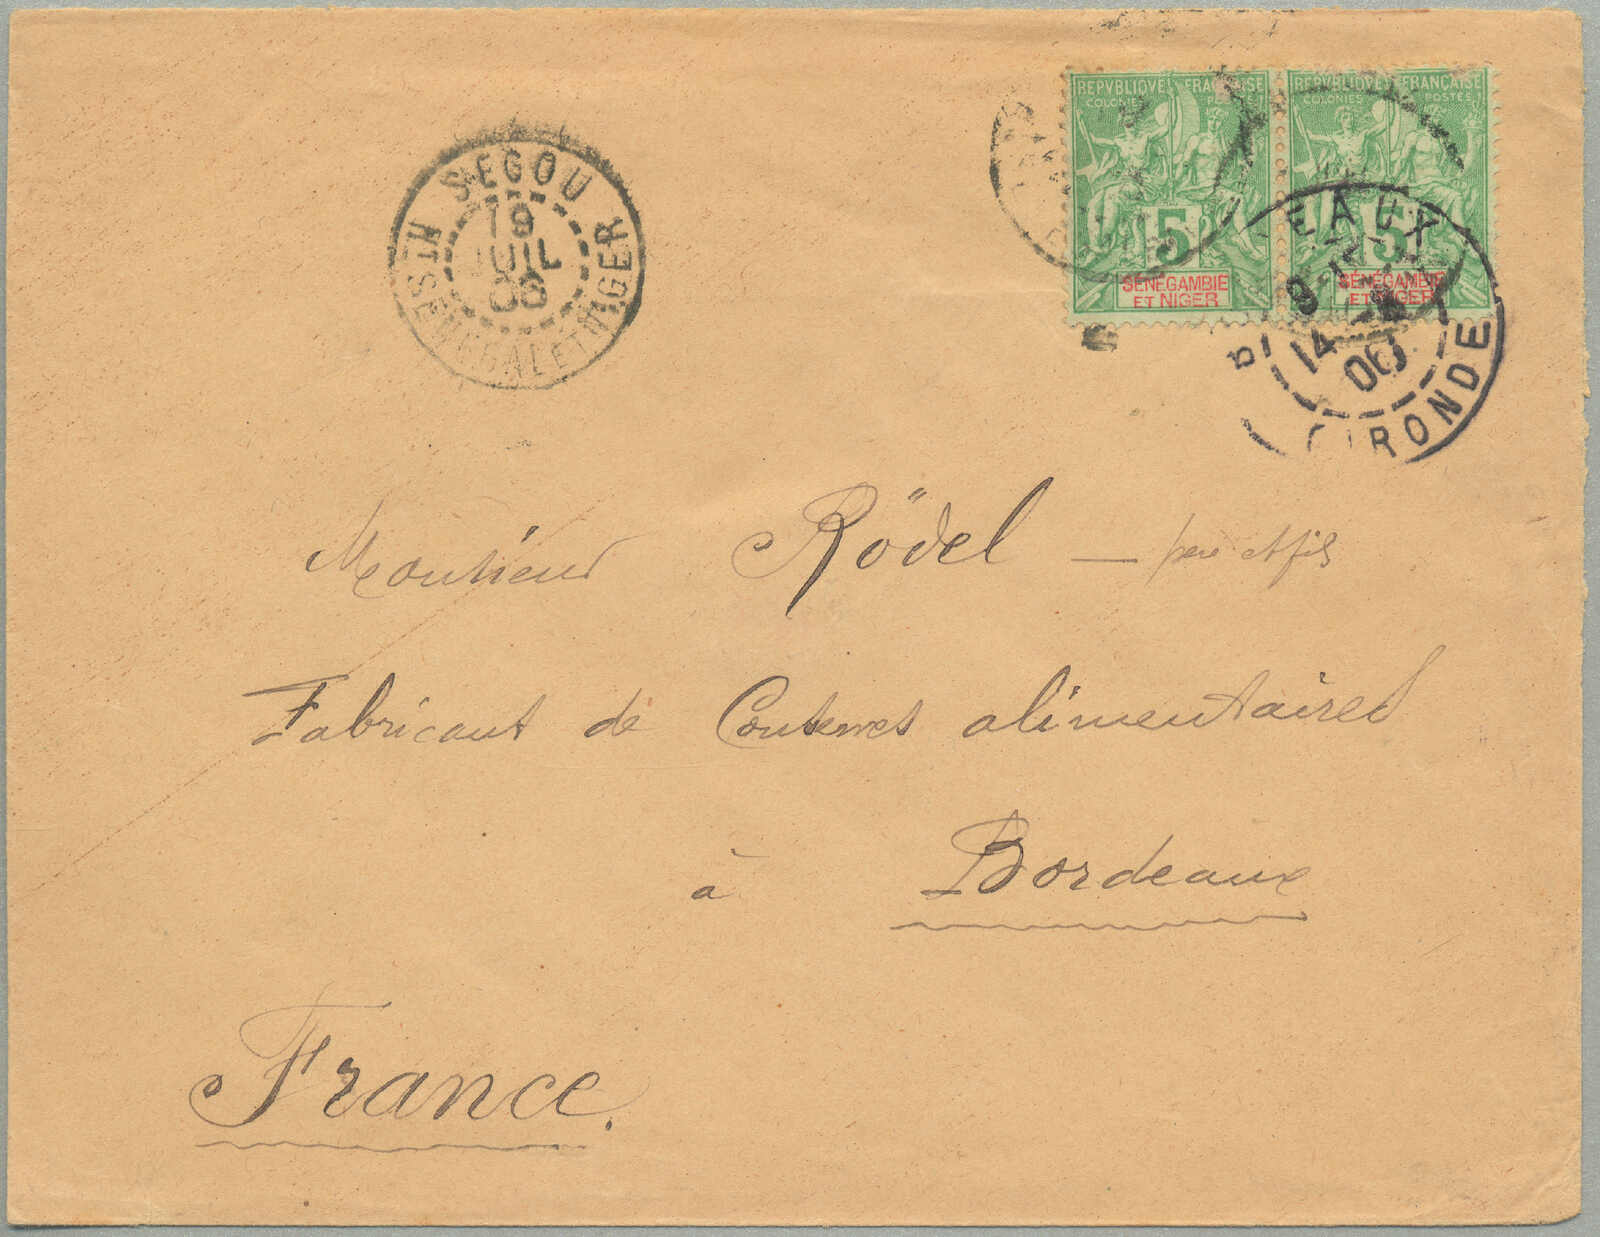 REPVBLIQVE FRANÇAISE
COLONIES POSTES
5 c
SÉNÉGAMBIE
ET NIGER
REPVBLIQVE FRANÇAISE
COLONIES POSTES
5 c
SÉNÉGAMBIE
ET NIGER
SEGOU
19
JUIL
06
HT SENEGAL ET NIGER
B EAUX
14
06
GIRONDE
Monsieur Rödel — père et fils
Fabricant de Conserves alimentaires
à Bordeaux
France.